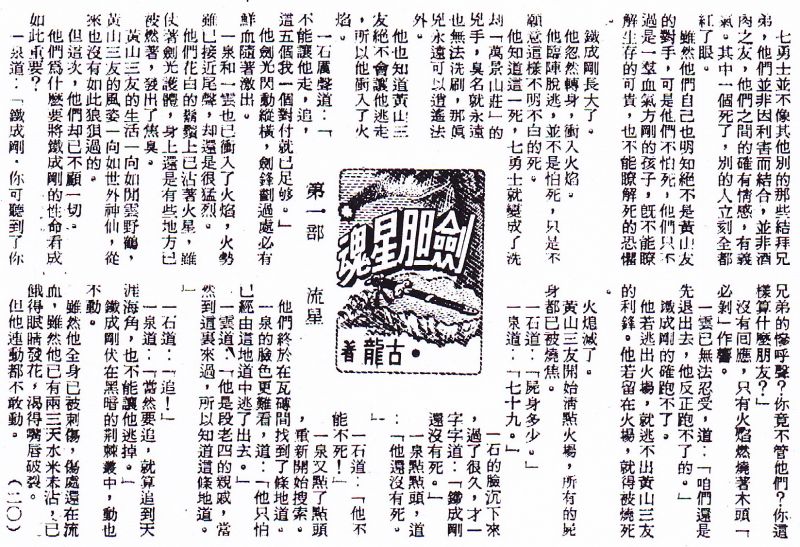 七勇士並不像其他別的那些結拜兄
弟，他們並非因利害而結合，並非酒
肉之友，他們之間的確有情感，有義
氣。其中一個死了，別的人立刻全都
紅了眼。
雖然他們自己也明知絕不是黃山友
的對手，可是他們不怕死，他們只不
過是一羣血氣方剛的孩子，旣不能瞭
解生存的可貴，也不能瞭解死的恐懼
。
鐵成剛長大了。
他忽然轉身，衝入火焰。
他臨陣脫逃，並不是怕死，只是不
願意這樣不明不白的死。
他知道這一死，七勇士就變成了洗
劫「萬景山莊」的
兇手，臭名就永遠
也無法洗刷，那眞
兇永遠可以逍遙法
外。
他也知道黃山三
友絕不會讓他逃走
，所以他衝入了火
焰。
一石厲聲道：「
不能讓他走，追，
這五個我一個對付就已足够。」
他劍光閃動縱橫，劍鋒劃過處必有
鮮血隨著激出。
一泉和一雲也已衝入了火焰，火勢
雖已接近尾聲，却還是很猛烈。
他們花白的鬚髯上已沾著火星，雖
仗著劍光護體，身上還是有些地方已
被燃著，發出了焦臭。
黃山三友的生活一向如閒雲野鶴，
黃山三友的風姿一向如世外神仙，從
來也沒有如此狼狽過的。
但這次，他們却已不顧一切。
他們爲什麼要將鐵成剛的性命看成
如此重要？
一泉道：「鐵成剛，你可聽到了你
劍胆星魂
古龍•著
第一部　流星
兄弟的慘呼聲？你竟不管他們？你這
樣算什麼朋友？」
沒有回應，只有火焰燃燒著木頭「
必剝」作響。
一雲已無法忍受，道：「咱們還是
先退出去，他反正跑不了的。」
鐵成剛的確跑不了。
他若逃出火場，就逃不出黃山三友
的利鋒。他若留在火場，就得被燒死
。
火熄滅了。
黃山三友開始清點火場，所有的屍
身都已被燒焦。
一石道：「屍身多少。」
一泉道：「七十九。」
一石的臉沉下來
，過了很久，才一
字字道：「鐵成剛
還沒有死。」
一泉點點頭，道
：「他還沒有死。
」
一石道：「他不
能不死！」
一泉又點了點頭
，重新開始搜索。
他們終於在瓦磚間找到了條地道。
一泉的臉色更難看，道：「他只怕
已經由這地道中逃了出去。」
一雲道：「他是段老四的親戚，當
然到這裏來過，所以知道這條地道。
」
一石道：「追！」
一泉道：「當然要追，就算追到天
涯海角，也不能讓他逃掉。」
鐵成剛伏在黑暗的荊棘叢中，動也
不動。
雖然他全身已被刺傷，傷處還在流
血，雖然他已有兩三天水米未沾，已
餓得眼睛發花，渴得嘴唇破裂。
但他連動都不敢動。　（二〇）